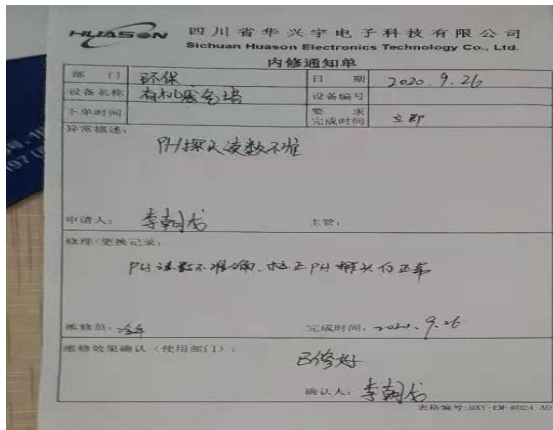 HUASON 四川省华兴宇电子科技有限公司
Sichuan Huason Electronics Technology Co., Ltd.
内修通知单
部 门 环保 日 期 2020.9.26
设备名称 有机废气塔 设备编号
下单时间 要 求 完成时间 立即
异常描述:
PH探头读数不准
申请人: 李朝龙 主管:
修理/更换记录:
PH读数不准确、校正PH探头后正常
维修员: 完成时间: 2020.9.26
维修效果确认(使用部门):
已修好
确认人: 李朝龙
表格编号:HXY-EM-R024 A0